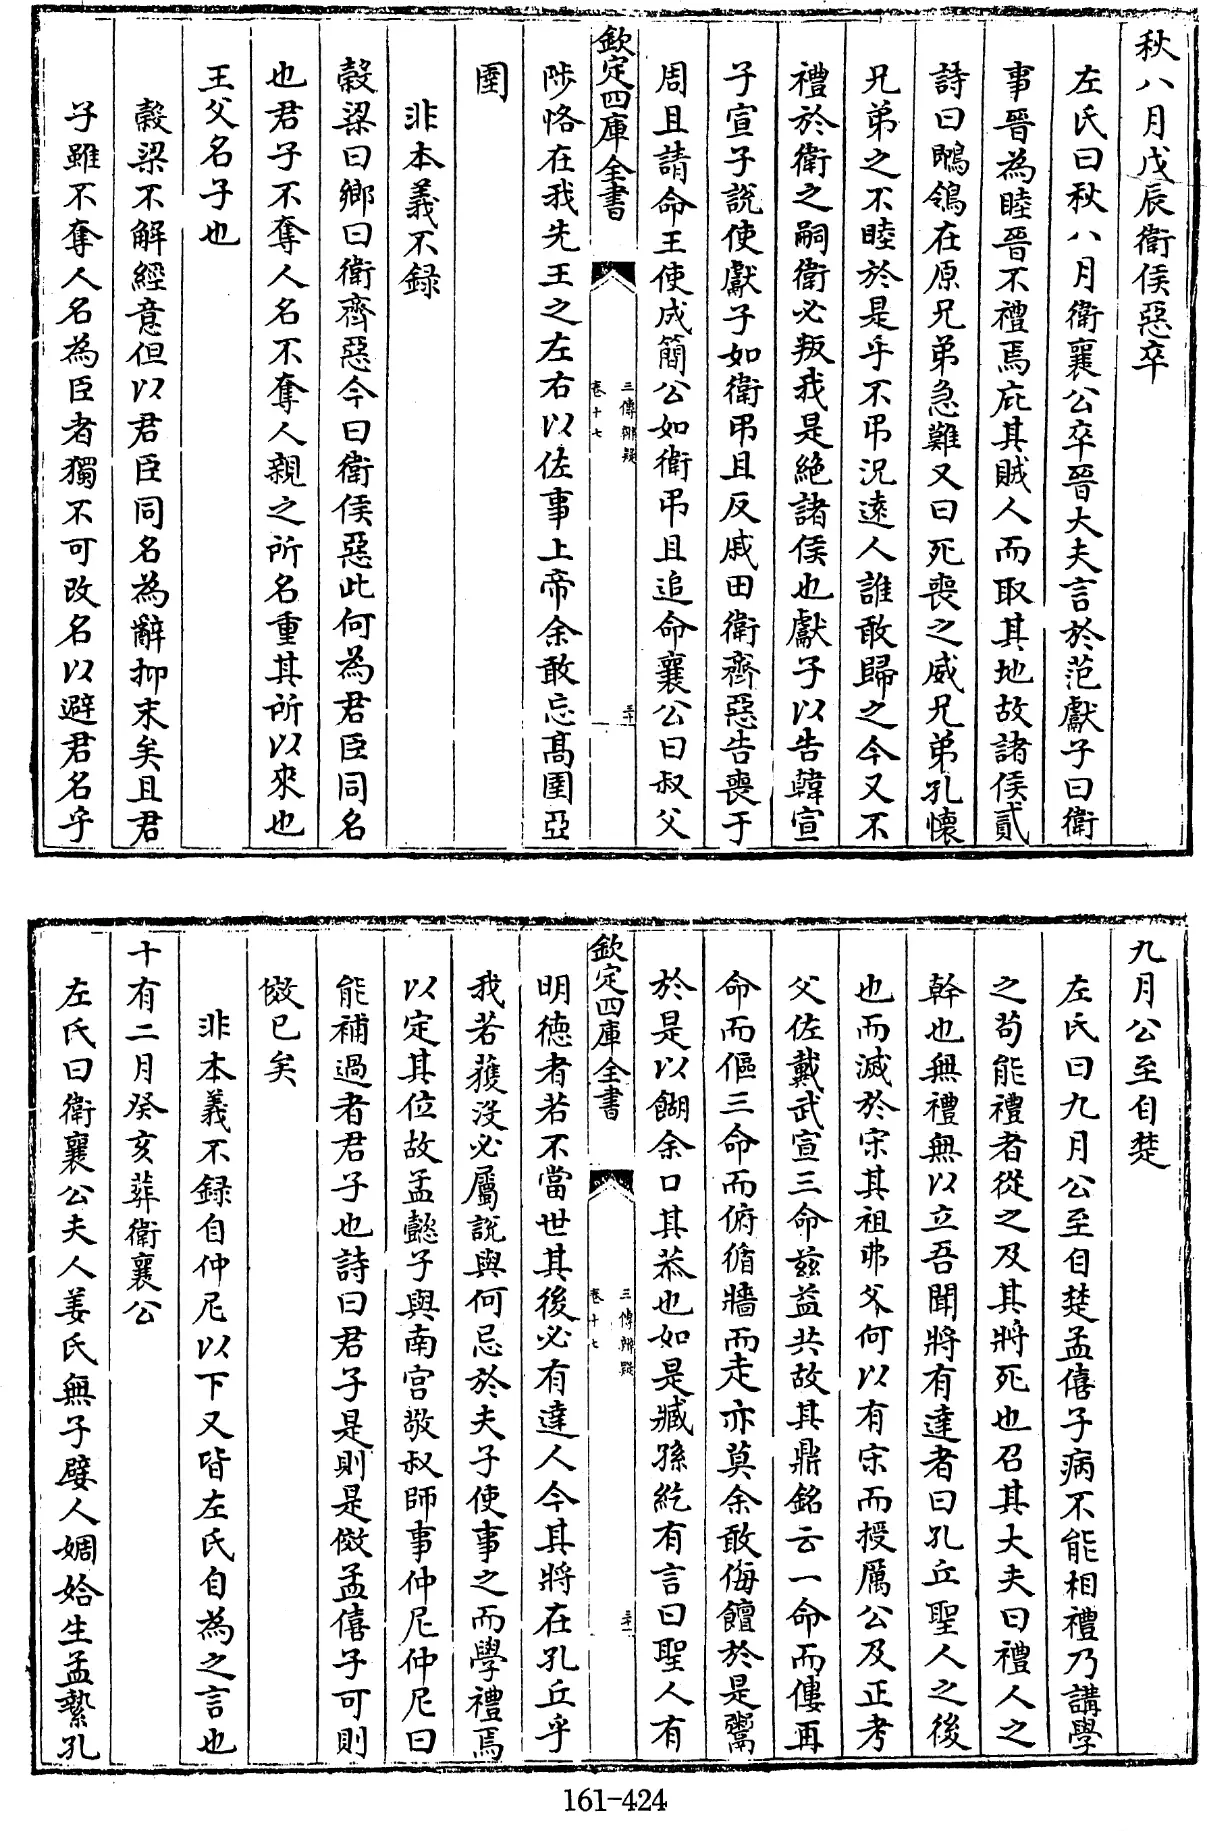 秋八月戊辰衛侯惡卒
左氏曰秋八月衛襄公卒晉大夫言於范獻子曰衛
事晉為睦晉不禮焉庇其賊人而取其地故諸侯貳
詩曰鶺鴒在原兄弟急難又曰死喪之威兄弟孔懷
兄弟之不睦於是乎不弔況遠人誰敢歸之今又不
禮於衛之嗣衛必叛我是絶諸侯也獻子以告韓宣
子宣子說使獻子如衛弔且反戚田衛齊惡告喪于
周且請命王使成簡公如衛弔且追命襄公曰叔父
欽定四庫全書
三傳辨疑
卷十七
三十
陟恪在我先王之左右以佐事上帝余敢忘髙圉亞
圉
非本義不録
榖梁曰鄉曰衛齊惡今曰衛侯惡此何為君臣同名
也君子不奪人名不奪人親之所名重其所以來也
王父名子也
榖梁不解經意但以君臣同名為辭抑末矣且君
子雖不奪人名為臣者獨不可改名以避君名乎
九月公至自楚
左氏曰九月公至自楚孟僖子病不能相禮乃講學
之苟能禮者從之及其將死也召其大夫曰禮人之
幹也無禮無以立吾聞將有達者曰孔丘聖人之後
也而滅於宋其祖弗父何以有宋而授厲公及正考
父佐戴武宣三命兹益共故其鼎銘云一命而僂再
命而傴三命而俯循牆而走亦莫余敢侮饘於是鬻
於是以餬余口其恭也如是臧孫紇有言曰聖人有
欽定四庫全書
三傳辨疑
卷十七
三十一
明德者若不當世其後必有達人今其將在孔丘乎
我若獲沒必屬說與何忌於夫子使事之而學禮焉
以定其位故孟懿子與南宫敬叔師事仲尼仲尼曰
能補過者君子也詩曰君子是則是傚孟僖子可則
傚已矣
非本義不録自仲尼以下又皆左氏自為之言也
十有二月癸亥葬衛襄公
左氏曰衛襄公夫人姜氏無子嬖人婤姶生孟縶孔
161-424